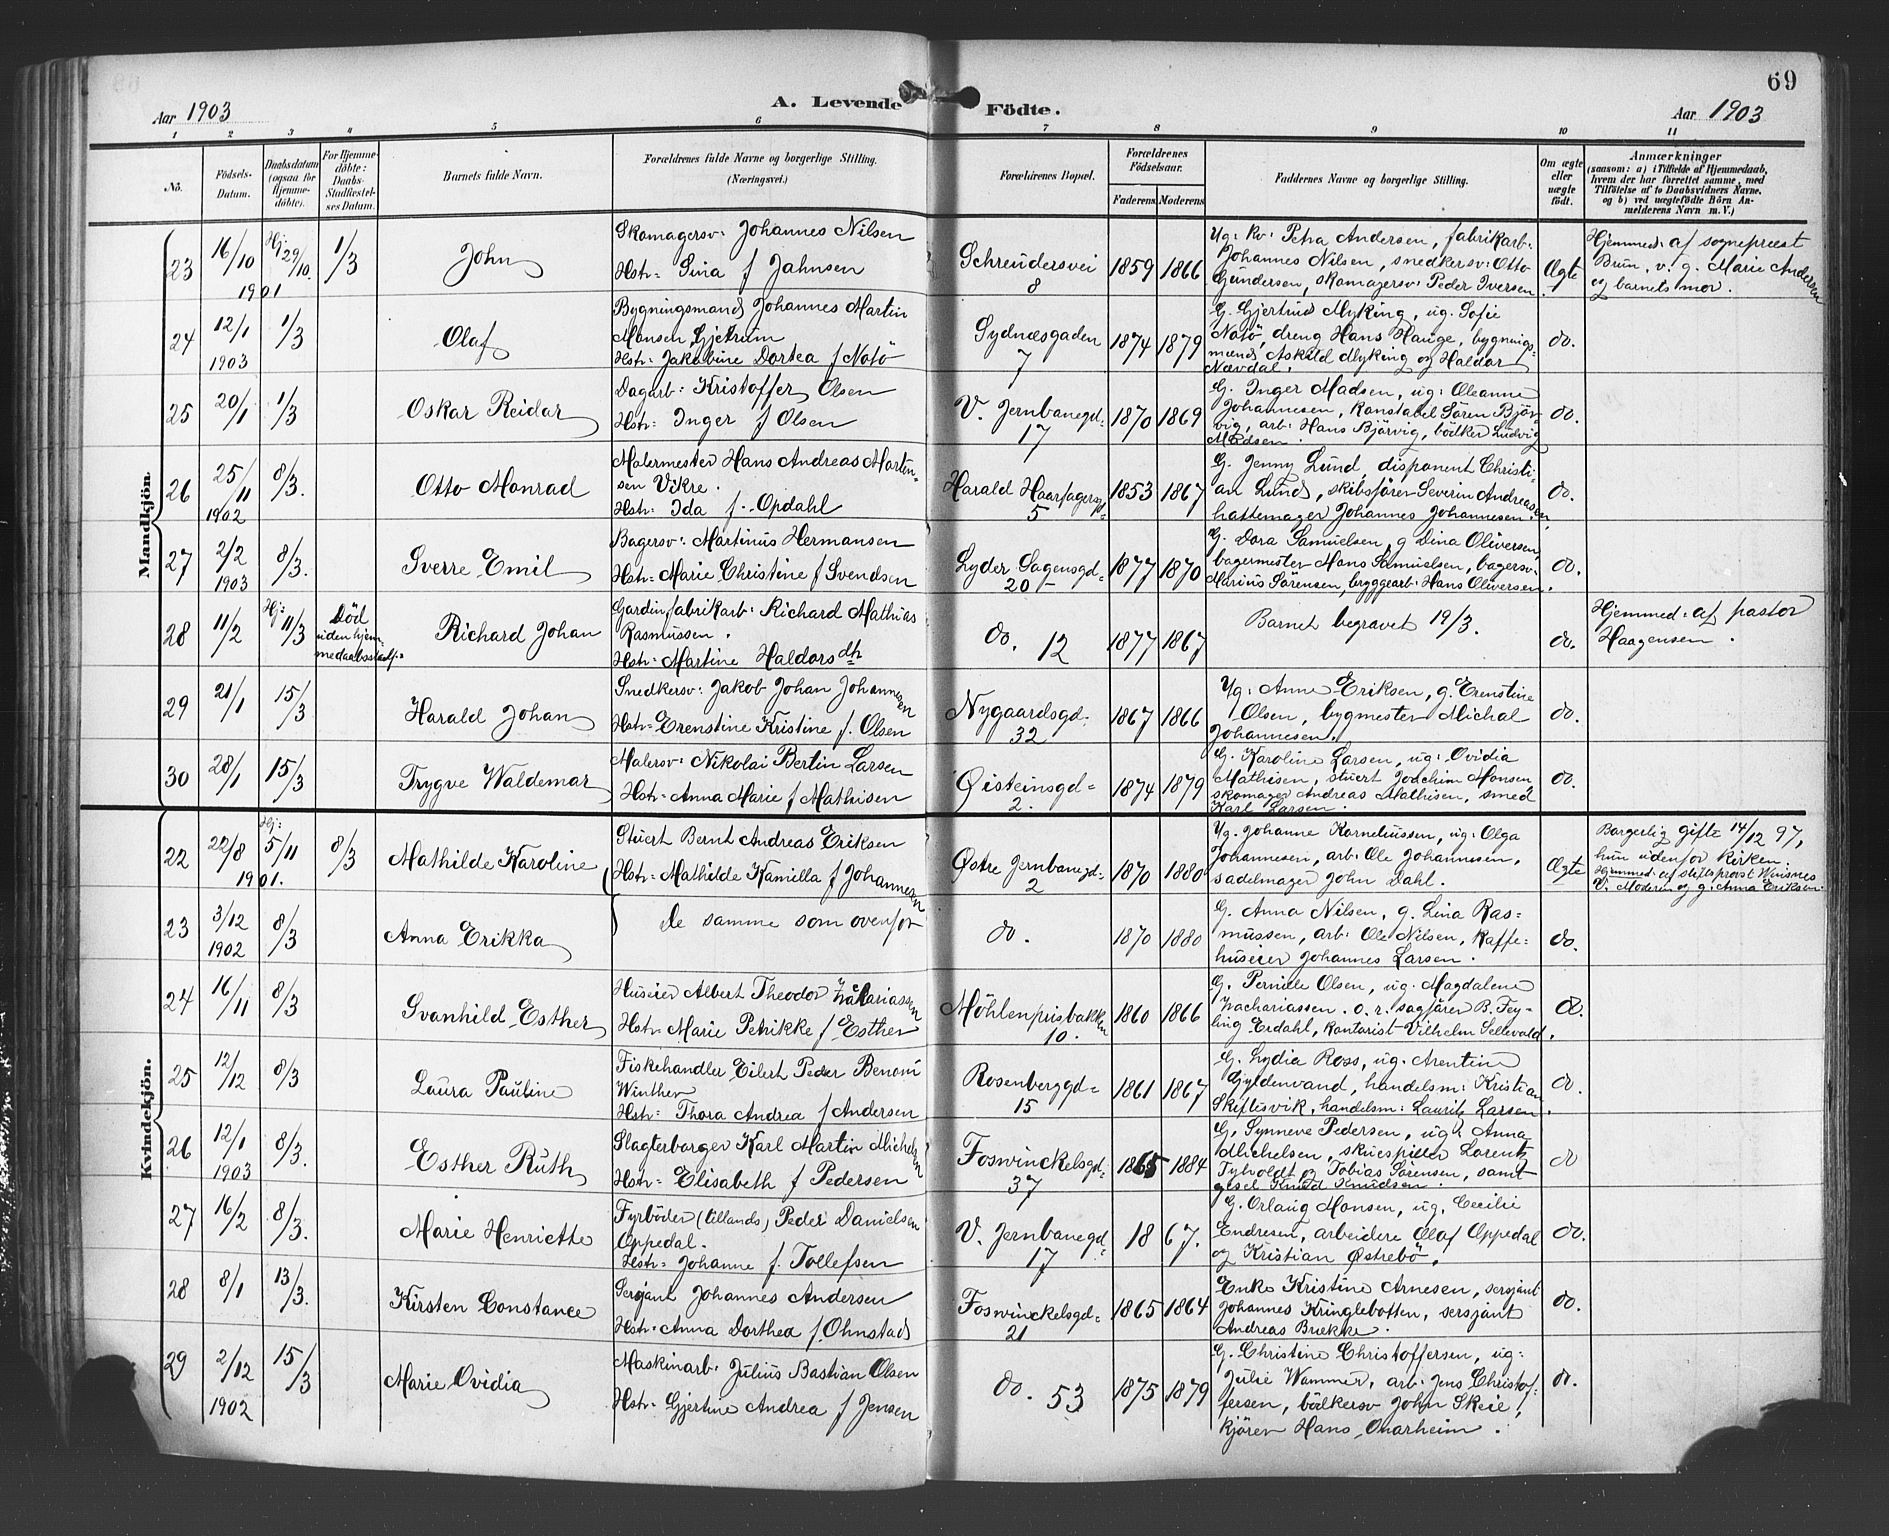 69
Aar 1903
A. Levende Födte.
Aar 1903
1 2 3 4 5 6 7 8 9 10 11
No.
Födsels-Datum.
Daabsdatum (ogsaa for Hjemme-döbte).
For Hjemme-döbte: Daabs-Stadfæstel-ses Datum.
Barnets fulde Navn.
Forældrenes fulde Navne og borgerlige Stilling.
(Næringsvei.)
Forældrenes Bopæl.
Forældrenes Födselsaar.
Faderens Moderens
Faddernes Navne og borgerlige Stilling.
Om ægte eller uægte födt.
Anmærkninger
(saasom: a) i Tilfælde af Hjemmedaab,
hvem der har forrettet samme, med
Tilföielse af to Daabsvidners Navne,
og b) ved uægtefödte Börn An-
melderens Navn m. V.)
Mandkjön.
23 16/10 1901 Hj: 29/10. 1/3 John
Skomagersv: Johannes Nilsen
Hstr: Sina f Jahnsen
Schreudersvei 8
1859 1866
Ug: Kv: Petra Andersen, fabrikarb:
Johannes Nilsen, snedkersv: Otto
Gundersen, skomagersv: Peder Iversen
Ægte.
Hjemmed: af sognepræst
Brun, v. g. Marie Andersen
og barnets mor.
24 12/1 1903 1/3 Olaf
Bygningsmand Johannes Martin
Monsen Gjetrum
Hstr: Jakobine Dortea f Notö
Sydnæsgaden 7
1874 1879
G. Gjertrud Myking, ug. Sofie
Notö, dreng Hans Hauge, bygnings-
mænd Askild Myking og Haldor
Nævdal.
do.
25 20/1 1/3 Oskar Reidar
Dagarb: Kristoffer Olsen
Hstr: Inger f Olsen
V. Jernbanegd: 17
1870 1869
G. Inger Madsen, ug: Oleanne
Johannesen, konstabel Sören Björ-
vig, arb: Hans Bjärvig, bödker Ludvig
Madsen.
do.
26 25/11 1902 8/3. Otto Monrad
Malermester Hans Andreas Marten-
sen Vikre.
Hstr: Ida f. Opdahl
Harald Haarfagersgd: 5
1853 1867
G. Jenny Lund, disponent Christi-
an Lund, skibsförer Severin Andreasen,
hattemager Johannes Johannesen.
do.
27 2/2 1903 8/3. Sverre Emil
Bagersv: Martinus Hermansen
Hstr: Marie Christine f Svendsen
Lyder Sagensgd: 20
1877 1870
G. Dora Samuelsen, g Dina Oliversen,
bagermester Mons Samuelsen, bagersv.
Marius Sörensen, bryggearb: Hans Oliversen.
do.
28 11/2 Hj: 11/3 Död uden hjem-medaabsstadf: Richard Johan
Gardinfabrikarb: Richard Mathias
Rasmussen.
Hstr: Martine Haldorsdtr
do. 12
1877 1867
Barnet begravet 19/3.
do.
Hjemmed: af pastor
Haagensen.
29 21/1 15/3 Harald Johan
Snedkersv: Jakob Johan Johannesen
Hstr: Erenstine Kristine f. Olsen
Nygaardsgd: 32
1867 1866
Ug: Anne Eriksen, g. Erenstine
Olsen, bygmester Michal
Johannesen.
do.
30 28/1 15/3 Trygve Waldemar
Malersv: Nikolai Bertin Larsen
Hstr: Anna Marie f Mathisen
Øisteinsgd: 2.
1874 1879
G. Karoline Larsen, ug: Ovidia
Mathisen, stuert Joachim Monsen,
skomager Andreas Mathisen, smed
Karl Larsen.
do.
Kvindekjön.
22 22/8 1901. Hj: 5/11 8/3 Mathilde Karoline
Stuert Bernt Andreas Eriksen
Hstr: Mathilde Kamilla f Johannesen
Østre Jernbanegd: 2
1870 1880
Ug. Johanne Korneliussen, ug: Olga
Johannesen, arb: Ole Johannesen,
sadelmager John Dahl.
Ægte
Borgerlig gifte 14/12 97,
hun udenfor kirken.
Hjemmed: af stiftsprovst
V. Moderen og g. Anna Eriksen.
23 3/12 1902 8/3 Anna Erikka
De samme som ovenfor
do.
1870 1880
G. Anna Nilsen, g. Lina Ras-
mussen, arb: Ole Nilsen, kaffe-
huseier Johannes Larsen.
do.
24 16/11 8/3 Svanhild Esther
Huseier Albert Theodor Zakariassen
Hstr: Marie Petrikke f Esther
Möhlenprisbakken 10.
1860 1866
G. Pernille Olsen, ug. Magdalene
Zachariassen. o. r. sagförer B. Fey-
ling Erdahl, kontorist Vilhelm Sellevold.
do.
25 12/12 8/3 Laura Pauline
Fiskehandler Eilert Peder Benoni
Winther
Hstr: Thora Andrea f Andersen
Rosenberggd: 15
1861 1867
G. Lydia Ross, ug. Arentine
Gyldenvand, handelsm: Kristian
Skiftesvik, handelsm: Laurits Larsen.
do.
26 12/1 1903 8/3. Esther Ruth
Slagterborger Karl Martin Michelsen
Hstr: Elisabeth f Pedersen
Foswinckelsgd: 37
1865 1884
G. Synneve Pedersen, ug. Anna
Michelsen, skuespiller Lorentz
Tyholdt og Tobias Sörensen, samt
gjæst Knud Knudsen.
do
27 16/2 8/3. Marie Henriette
Fyrböder (tillands) Peder Danielsen
Oppedal.
Hstr: Johanne f. Tollefsen
V. Jernbanegd: 17
1867.
G. Orlaug Monsen, ug. Cecilie
Endresen, arbeidere Olaf Oppedal
og Kristian Østrebö.
do.
28 8/1 13/3. Kirsten Constance
Sersjant Johannes Andersen
Hstr: Anna Dorthea f. Ohnstad
Foswinckelsgd: 21
1865 1864
Enke Kristine Arnesen, sersjant
Johannes Kringlebotten, sersjant
Andreas Brekke.
do.
29 2/12 1902 15/3 Marie Ovidia
Maskinarb: Julius Bastian Olsen
Hstr: Gjertine Andrea f Jensen
do. 53
1875 1879
G. Christine Christoffersen, ug:
Julie Wammer, arb: Jens Christof-
fersen, bödkersv John Skeie,
kjörer Hans Onarheim.
do.